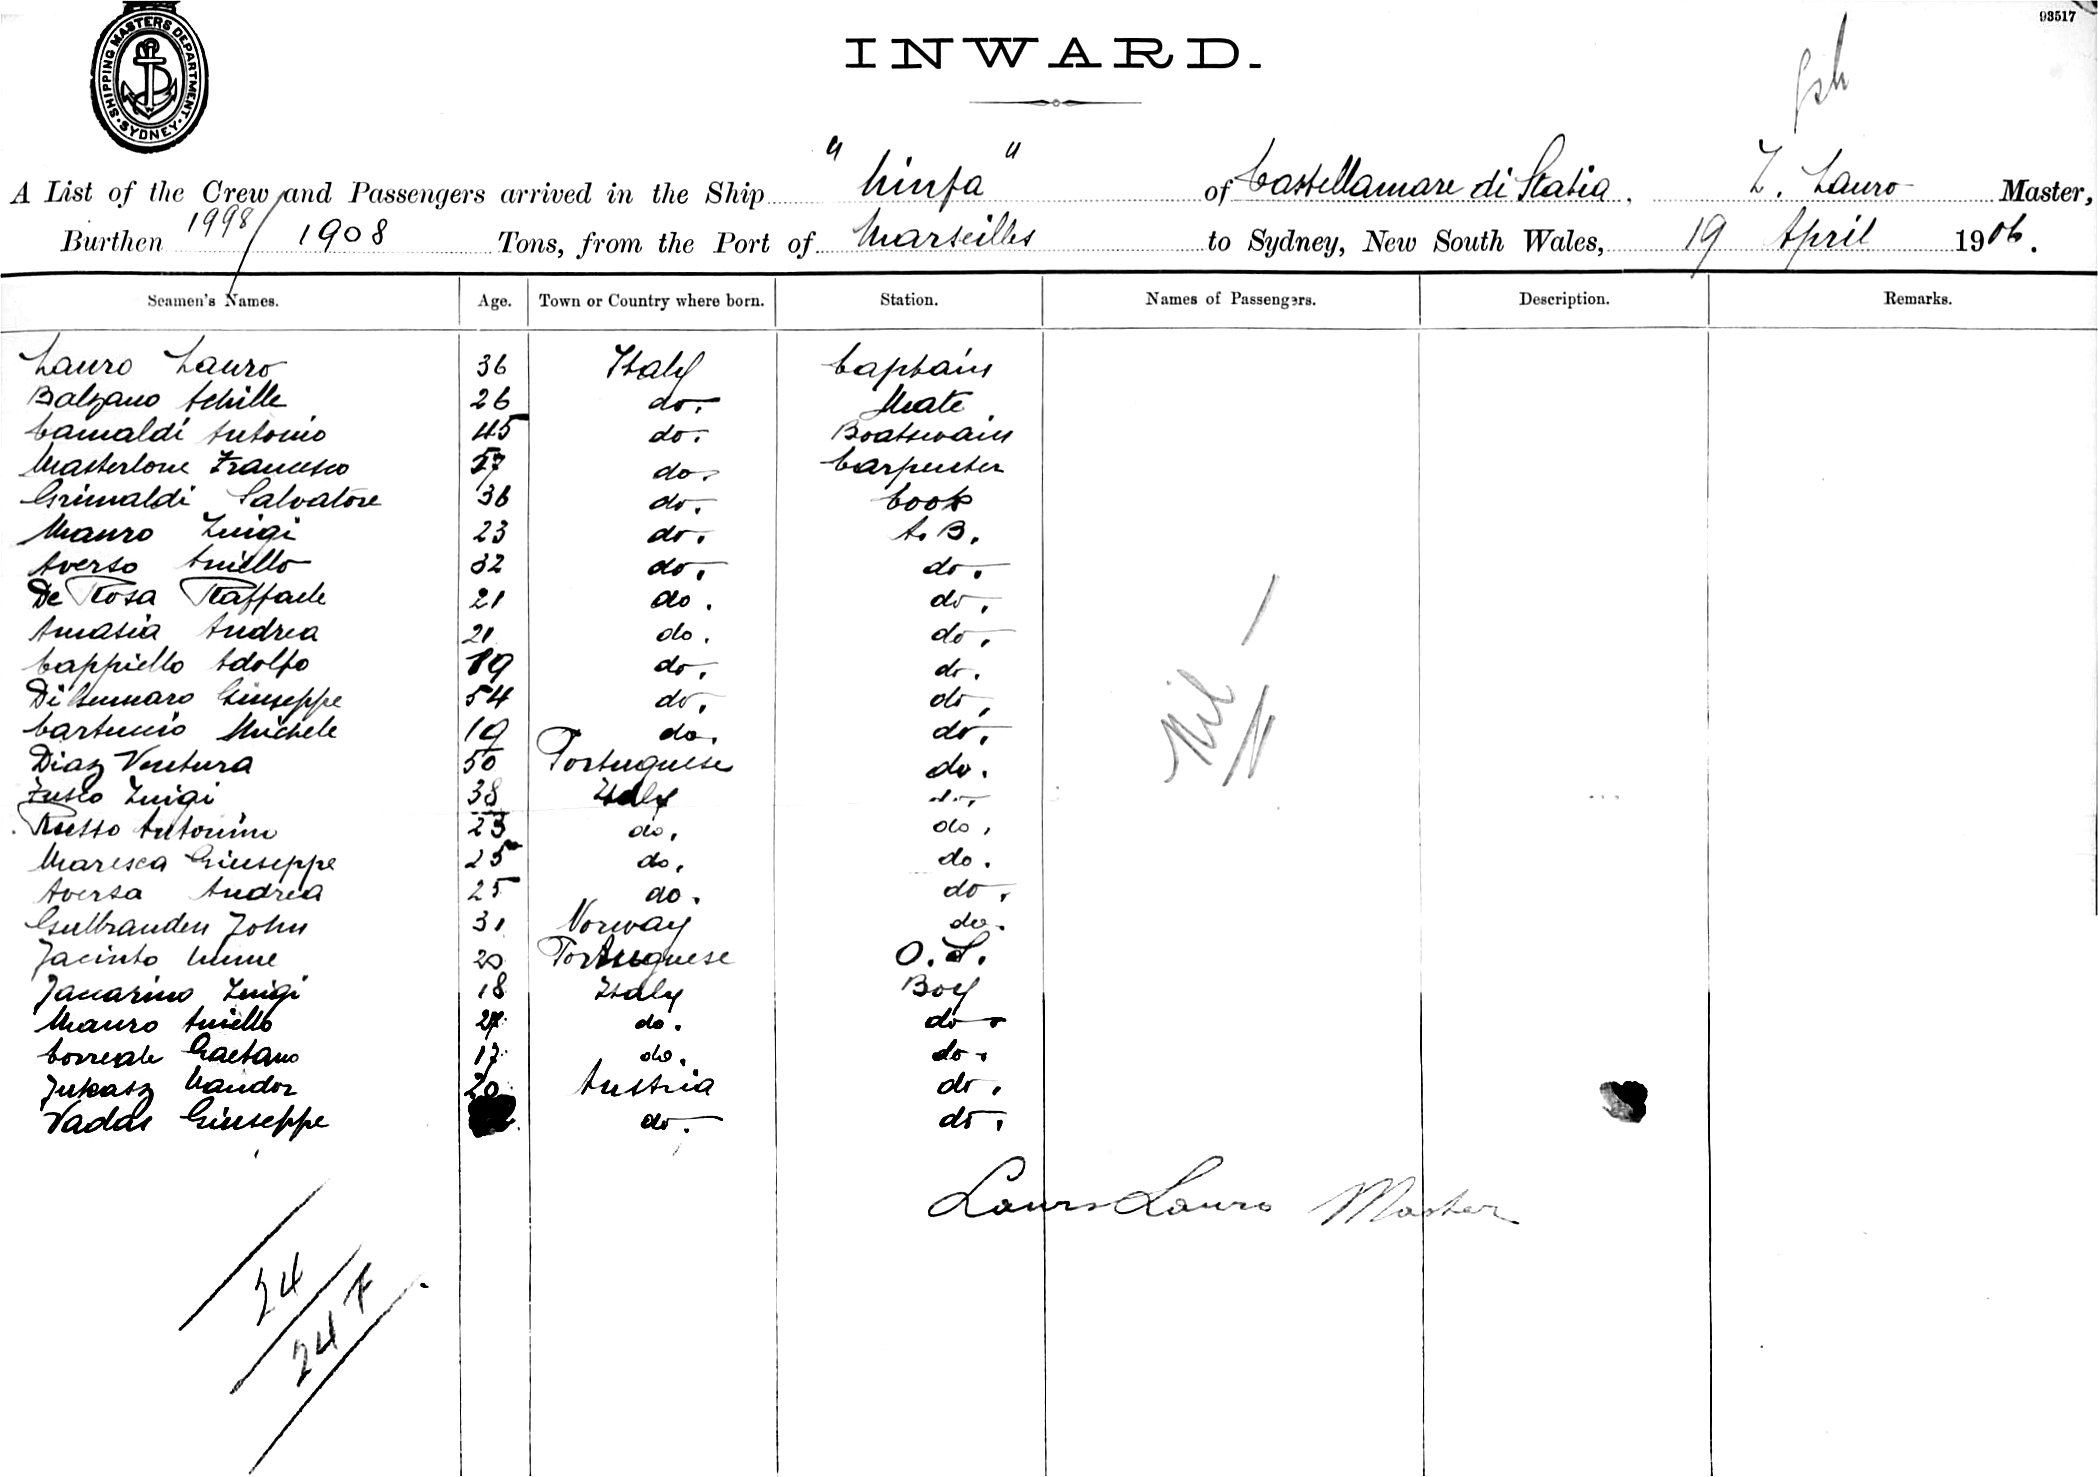 93517
SHIPPING MASTERS DEPARTMENT. SYDNEY.
INWARD.
A List of the Crew and Passengers arrived in the Ship "Ninfa" of Castellamare di Stabia, L. Lauro Master,
Burthen 1998/1908 Tons, from the Port of Marseilles to Sydney, New South Wales, 19 April 1906.
Seamen's Names. Age. Town or Country where born. Station. Names of Passengers. Description. Remarks.
Lauro Lauro 36 Italy Captain
Balzano Achille 26 do. Mate
Camaldi Antonio 45 do. Boatswain
Masterlone Francesco 57 do. Carpenter
Grimaldi Salvatore 36 do. Cook
Mauro Luigi 23 do. A.B.
Averso Aniello 32 do. do.
De Rosa Raffaele 21 do. do.
Amasia Andrea 21 do. do.
Cappiello Adolfo 19 do. do.
Di Gennaro Giuseppe 54 do. do.
Cartuccio Michele 19 do. do.
Diaz Ventura 50 Portuguese do.
Fusco Luigi 38 Italy do.
Russo Antonino 23 do. do.
Maresca Giuseppe 25 do. do.
Aversa Andrea 25 do. do.
Gulbranden John 31 Norway do.
Jacinto Nune 20 Portuguese O.S.
Jaccarino Luigi 18 Italy Boy
Mauro Aniello do. do.
Correale Gaetano 17 do. do.
Jukasz Nandor 20 Austria do.
Vadas Giuseppe do. do.
Nil
Lauro Lauro Master
24
24 F